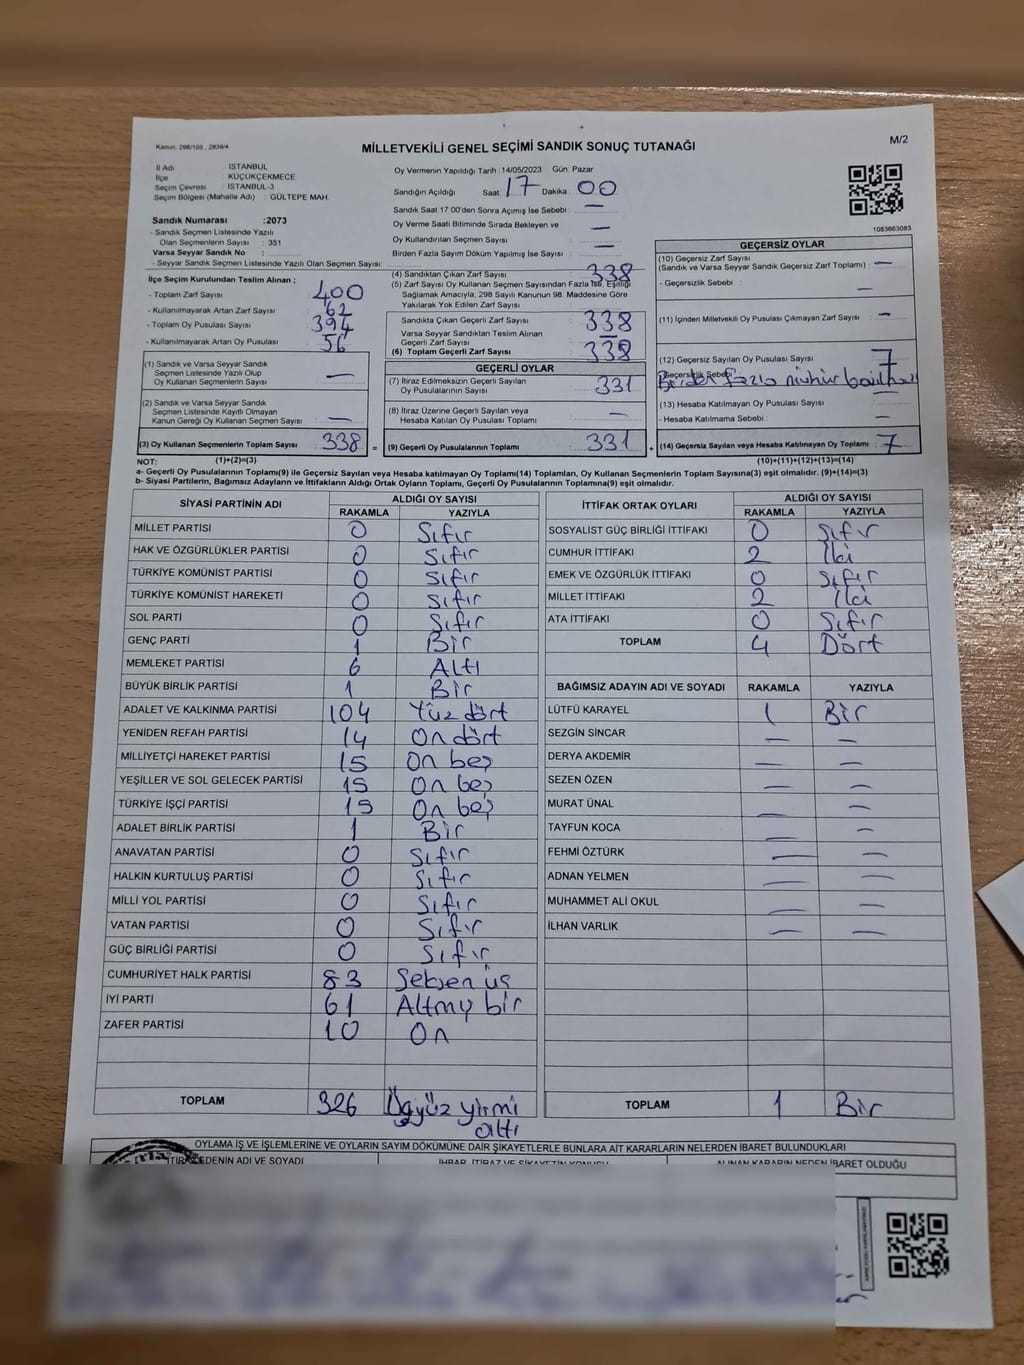 Kanun, 298/105 , 2839/4
M/2
MİLLETVEKİLİ GENEL SEÇİMİ SANDIK SONUÇ TUTANAĞI
İl Adı : İSTANBUL
İlçe : KÜÇÜKÇEKMECE
Seçim Çevresi : İSTANBUL-3
Seçim Bölgesi (Mahalle Adı) : GÜLTEPE MAH.
Sandık Numarası :2073
- Sandık Seçmen Listesinde Yazılı
Olan Seçmenlerin Sayısı : 351
Varsa Seyyar Sandık No :
- Seyyar Sandık Seçmen Listesinde Yazılı Olan Seçmen Sayısı:
Oy Vermenin Yapıldığı Tarih :14/05/2023 Gün: Pazar
Sandığın Açıldığı Saat: 17 Dakika : 00
Sandık Saat 17:00'den Sonra Açımış İse Sebebi : —
Oy Verme Saati Bitiminde Sırada Bekleyen ve
Oy Kullandırılan Seçmen Sayısı —
Birden Fazla Sayım Döküm Yapılmış İse Sayısı : —
1083663083
İlçe Seçim Kurulundan Teslim Alınan ;
- Toplam Zarf Sayısı : 400
- Kullanılmayarak Artan Zarf Sayısı : 62
- Toplam Oy Pusulası Sayısı : 394
- Kullanılmayarak Artan Oy Pusulası : 56
(1) Sandık ve Varsa Seyyar Sandık
Seçmen Listesinde Yazılı Olup
Oy Kullanan Seçmenlerin Sayısı : —
(2) Sandık ve Varsa Seyyar Sandık
Seçmen Listesinde Kayıtlı Olmayan
Kanun Gereği Oy Kullanan Seçmen Sayısı : —
(3) Oy Kullanan Seçmenlerin Toplam Sayısı : 338 =
(4) Sandıktan Çıkan Zarf Sayısı : 338
(5) Zarf Sayısı Oy Kullanan Seçmen Sayısından Fazla İse, Eşitliği
Sağlamak Amacıyla; 298 Sayılı Kanunun 98. Maddesine Göre
Yakılarak Yok Edilen Zarf Sayısı :
Sandıkta Çıkan Geçerli Zarf Sayısı : 338
Varsa Seyyar Sandıktan Teslim Alınan
Geçerli Zarf Sayısı : —
(6) Toplam Geçerli Zarf Sayısı : 338
GEÇERLİ OYLAR
(7) İtiraz Edilmeksizin Geçerli Sayılan
Oy Pusulalarının Sayısı : 331
(8) İtiraz Üzerine Geçerli Sayılan veya
Hesaba Katılan Oy Pusulası Toplamı : —
(9) Geçerli Oy Pusulalarının Toplamı : 331 +
GEÇERSİZ OYLAR
(10) Geçersiz Zarf Sayısı
(Sandık ve Varsa Seyyar Sandık Geçersiz Zarf Toplamı) : —
- Geçersizlik Sebebi : —
(11) İçinden Milletvekili Oy Pusulası Çıkmayan Zarf Sayısı : —
(12) Geçersiz Sayılan Oy Pusulası Sayısı : 7
- Geçersizlik Sebebi : Birden fazla mühür
(13) Hesaba Katılmayan Oy Pusulası Sayısı : —
- Hesaba Katılmama Sebebi : —
(14) Geçersiz Sayılan veya Hesaba Katılmayan Oy Toplamı : 7
NOT: (1)+(2)=(3) (10)+(11)+(12)+(13)=(14)
a- Geçerli Oy Pusulalarının Toplamı(9) ile Geçersiz Sayılan veya Hesaba katılmayan Oy Toplamı(14) Toplamları, Oy Kullanan Seçmenlerin Toplam Sayısına(3) eşit olmalıdır. (9)+(14)=(3)
b- Siyasi Partilerin, Bağımsız Adayların ve İttifakların Aldığı Ortak Oyların Toplamı, Geçerli Oy Pusulalarının Toplamına(9) eşit olmalıdır.
SİYASİ PARTİNİN ADI ALDIĞI OY SAYISI
RAKAMLA YAZIYLA
MİLLET PARTİSİ 0 Sıfır
HAK VE ÖZGÜRLÜKLER PARTİSİ 0 Sıfır
TÜRKİYE KOMÜNİST PARTİSİ 0 Sıfır
TÜRKİYE KOMÜNİST HAREKETİ 0 Sıfır
SOL PARTİ 0 Sıfır
GENÇ PARTİ 1 Bir
MEMLEKET PARTİSİ 6 Altı
BÜYÜK BİRLİK PARTİSİ 1 Bir
ADALET VE KALKINMA PARTİSİ 104 Yüz dört
YENİDEN REFAH PARTİSİ 14 On dört
MİLLİYETÇİ HAREKET PARTİSİ 15 On beş
YEŞİLLER VE SOL GELECEK PARTİSİ 15 On beş
TÜRKİYE İŞÇİ PARTİSİ 15 On beş
ADALET BİRLİK PARTİSİ 1 Bir
ANAVATAN PARTİSİ 0 Sıfır
HALKIN KURTULUŞ PARTİSİ 0 Sıfır
MİLLİ YOL PARTİSİ 0 Sıfır
VATAN PARTİSİ 0 Sıfır
GÜÇ BİRLİĞİ PARTİSİ 0 Sıfır
CUMHURİYET HALK PARTİSİ 83 Seksen üç
İYİ PARTİ 61 Altmış bir
ZAFER PARTİSİ 10 On
TOPLAM 326 Üçyüz yirmi
altı
İTTİFAK ORTAK OYLARI ALDIĞI OY SAYISI
RAKAMLA YAZIYLA
SOSYALİST GÜÇ BİRLİĞİ İTTİFAKI 0 Sıfır
CUMHUR İTTİFAKI 2 İki
EMEK VE ÖZGÜRLÜK İTTİFAKI 0 Sıfır
MİLLET İTTİFAKI 2 İki
ATA İTTİFAKI 0 Sıfır
TOPLAM 4 Dört
BAĞIMSIZ ADAYIN ADI VE SOYADI RAKAMLA YAZIYLA
LÜTFÜ KARAYEL 1 Bir
SEZGİN SİNCAR — —
DERYA AKDEMİR — —
SEZEN ÖZEN — —
MURAT ÜNAL — —
TAYFUN KOCA — —
FEHMİ ÖZTÜRK — —
ADNAN YELMEN — —
MUHAMMET ALİ OKUL — —
İLHAN VARLIK — —
TOPLAM 1 Bir
OYLAMA İŞ VE İŞLEMLERİNE VE OYLARIN SAYIM DÖKÜMÜNE DAİR ŞİKAYETLERLE BUNLARA AİT KARARLARIN NELERDEN İBARET BULUNDUKLARI
İTİRAZ EDENİN ADI VE SOYADI İHBAR, İTİRAZ VE ŞİKAYETİN KONUSU ALINAN KARARIN NEDEN İBARET OLDUĞU